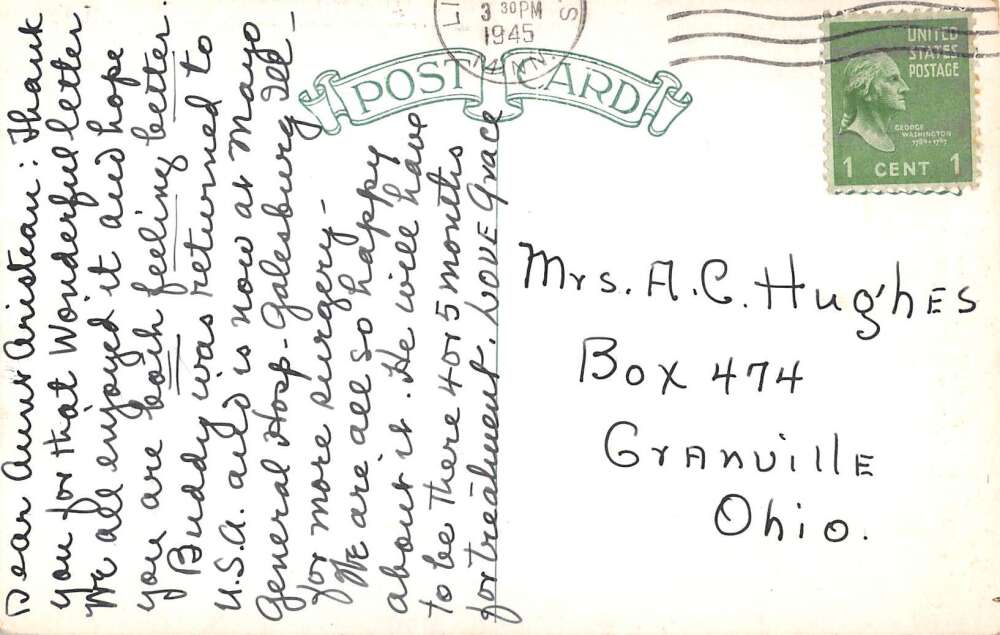 Dear Aunt Aristean: Thank
you for that Wonderful letter
We all enjoyed it and hope
you are both feeling better.
Buddy was returned to
U.S.A. and is now at Mayo
General Hosp. Galesburg Ill-
for more surgery-
We are all so happy
about it. He will have
to be there 4 or 5 months
for treatment. LOVE Grace
3 30 PM
1945
MINN.
POST CARD
UNITED
STATES
POSTAGE
GEORGE
WASHINGTON
1789-1797
1 CENT 1
Mrs. A.C. Hughes
Box 474
Granville
Ohio.